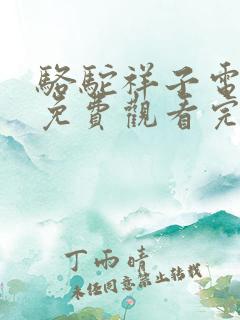 駱駝祥子電
免費觀看完
丁雨晴
未經同意禁止轉載